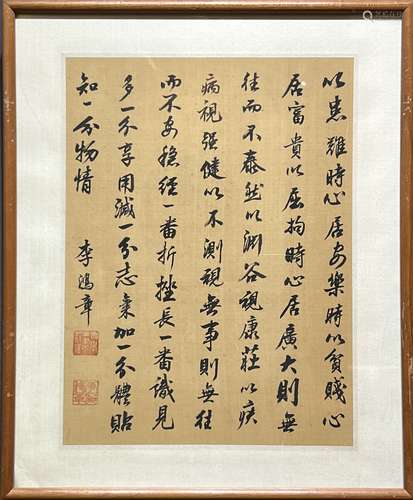 以患難時心居安樂時以貧賤心
居富貴以屈拘時心居廣大則無
往而不泰然以淵谷視康莊以疾
病視强健以不測視無事則無往
而不安穩經一番折挫長一番識見
多一分享用減一分志氣加一分體貼
知一分物情
李鴻章